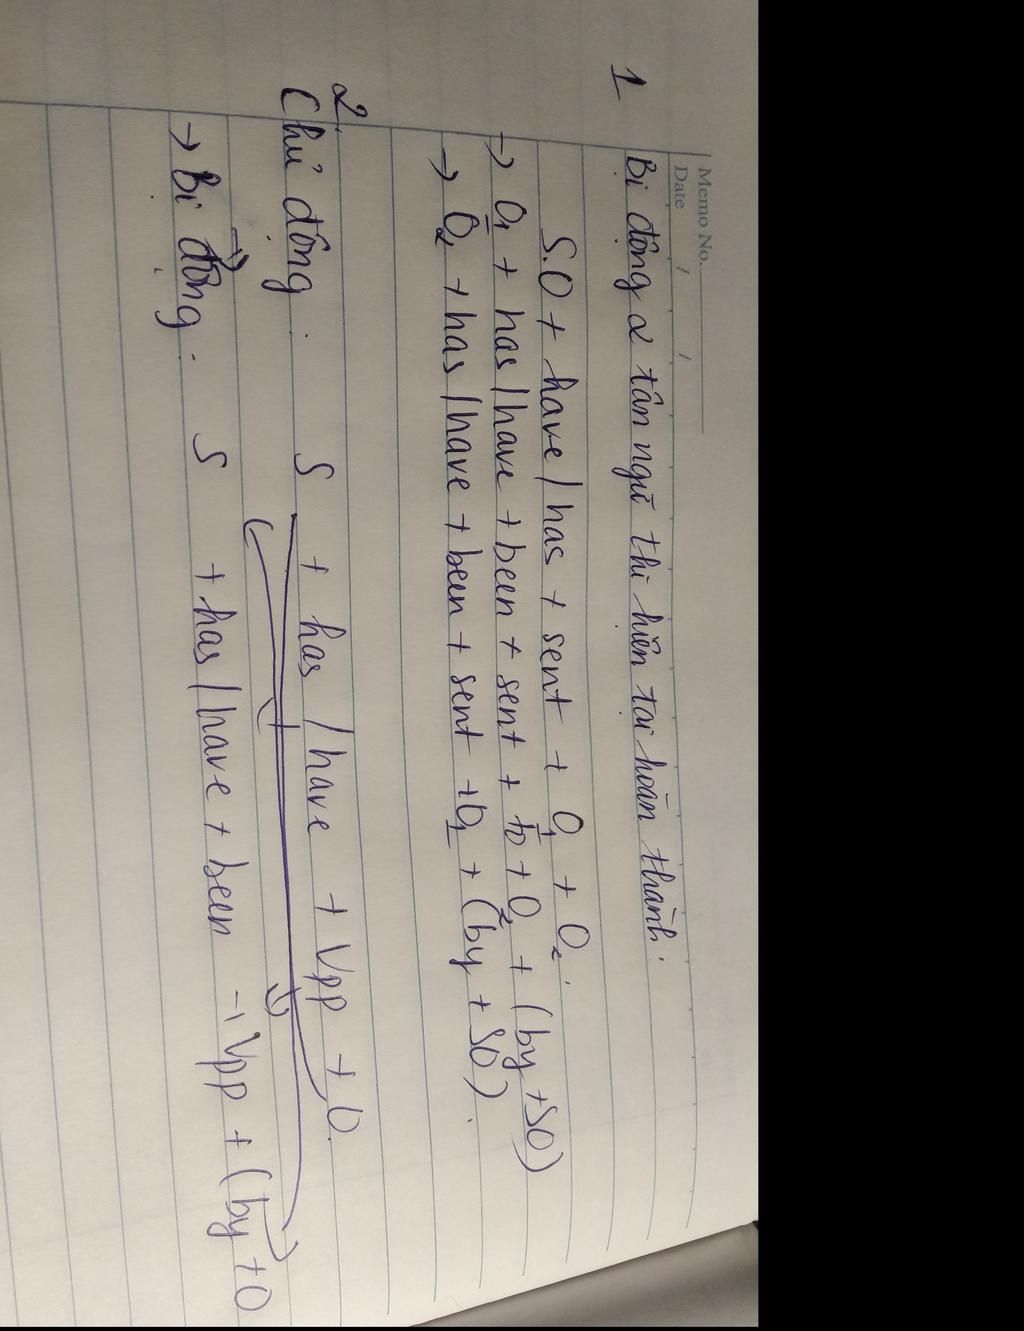 Memo No.
Date / /
1 Bị động 2 tân ngữ thì hiện tại hoàn thành.
S.O + have / has + sent + O1 + O2.
→ O1 + has / have + been + sent + to + O2 + (by + SO)
→ O2 + has / have + been + sent + O1 + (by + SO).
2.
Chủ động. S + has / have + Vpp + O.
→ Bị động. S + has / have + been + Vpp + (by + O